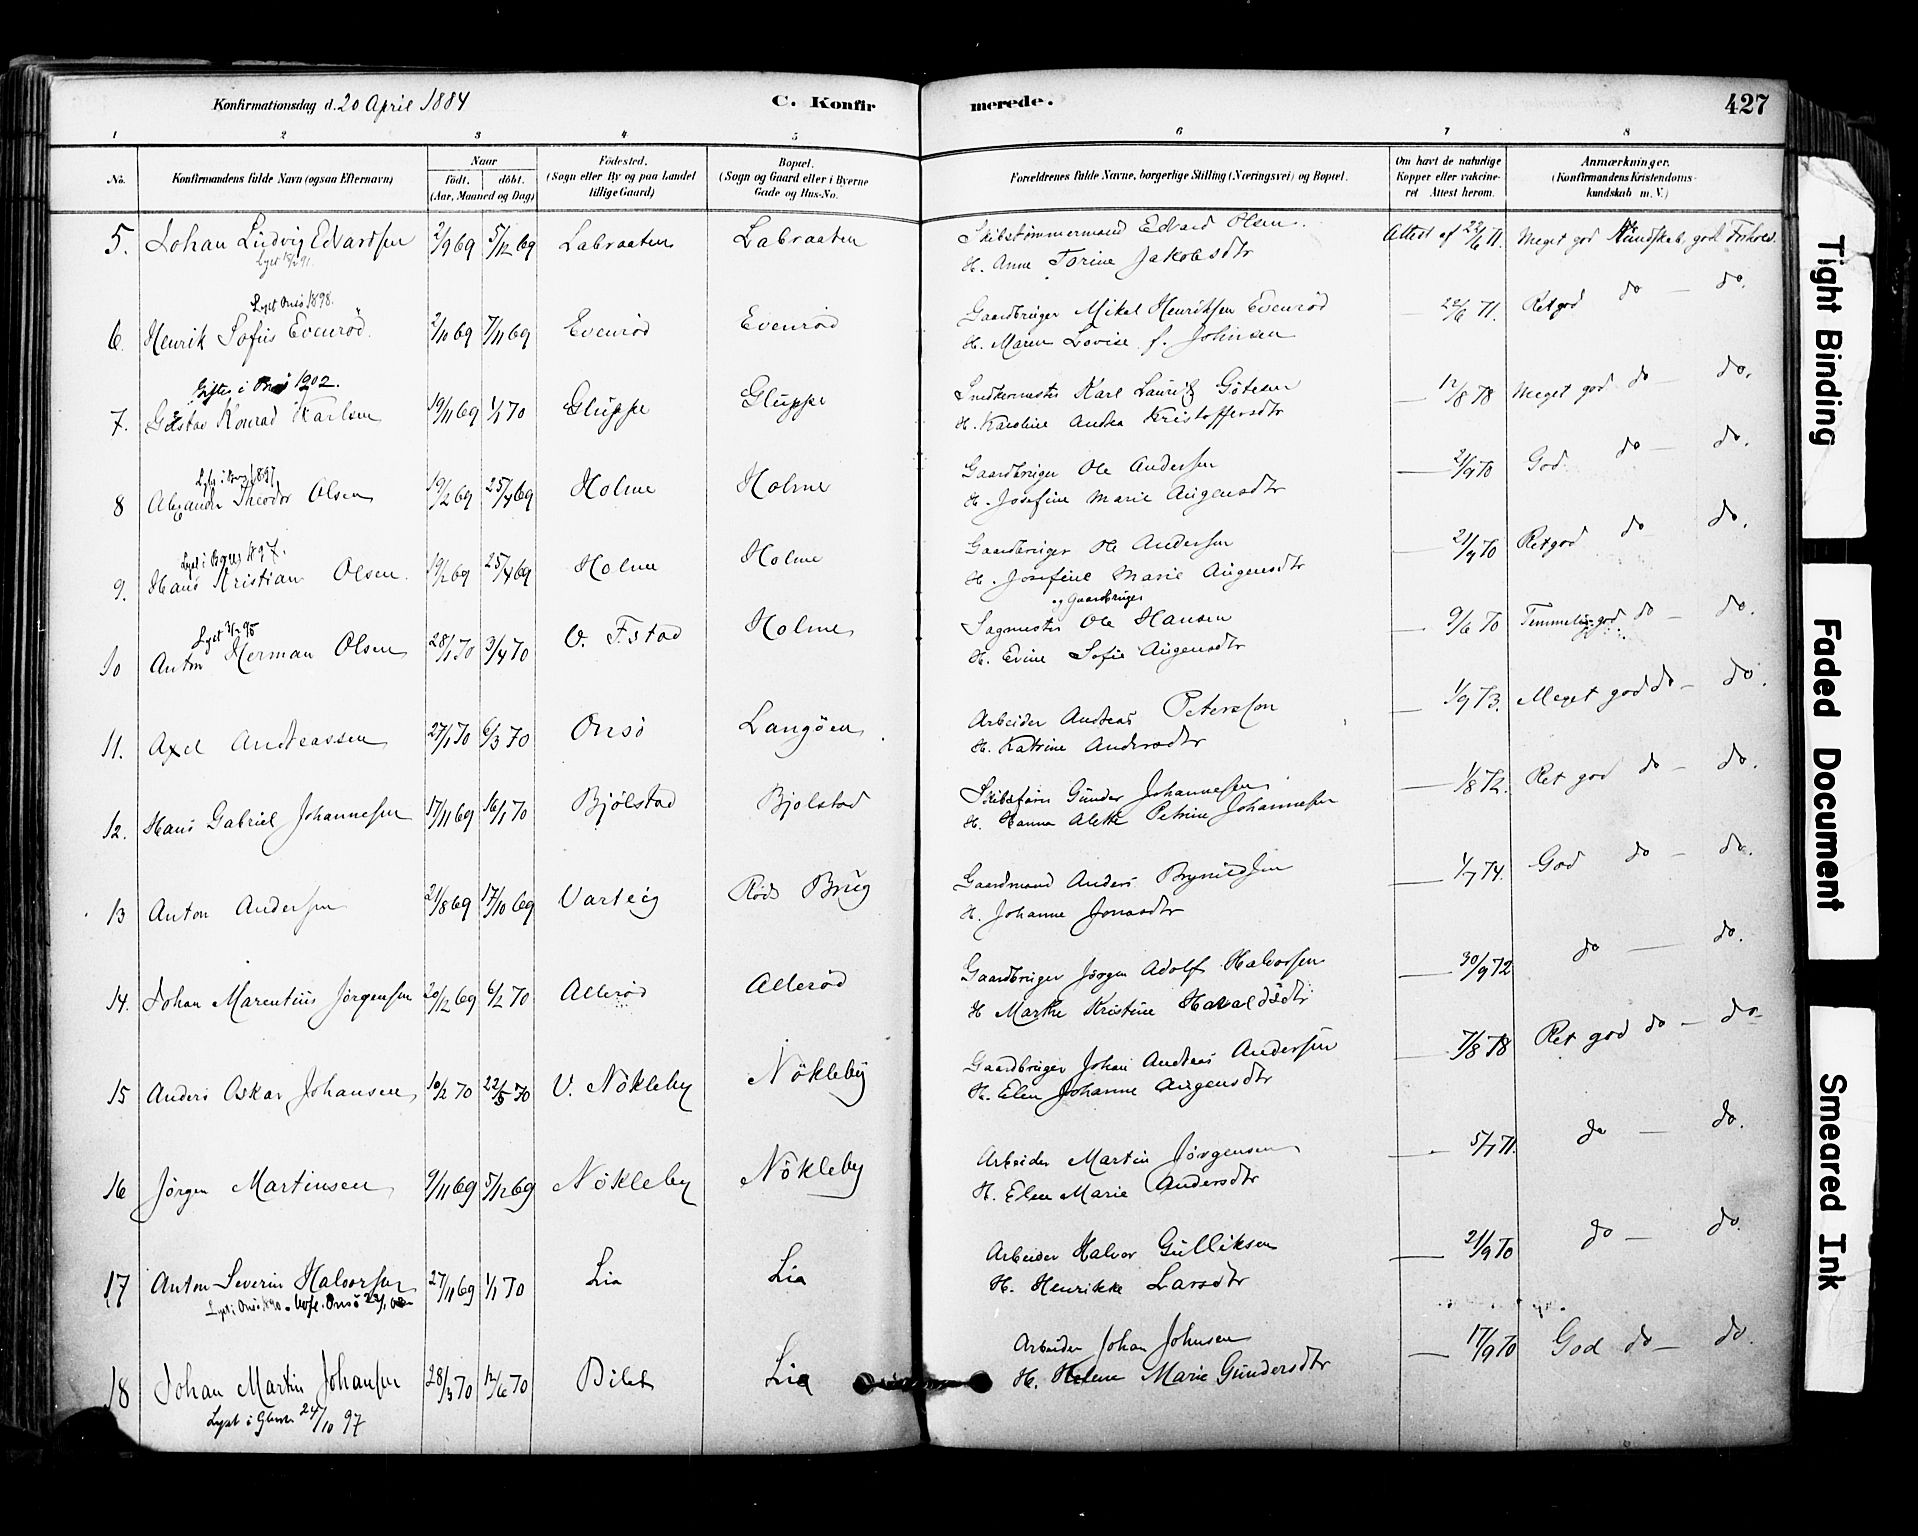 Konfirmationsdag d. 20 April 1884
C. Konfir
merede.
427
1 2 3 4 5 6 7 8
No.
Konfirmandens fulde Navn (ogsaa Efternavn)
Naar
födt. döbt.
(Aar, Maaned og Dag)
Födested.
(Sogn eller By og paa Landet
tillige Gaard)
Bopæl.
(Sogn og Gaard eller i Byerne
Gade og Hus-No.
Forældrenes fulde Navne, borgerlige Stilling (Næringsvei) og Bopæl.
Om havt de naturlige
Kopper eller vakcine-
ret Attest herom.
Anmærkninger.
(Konfirmandens Kristendoms-
kundskab m. V.)
5. Johan Ludvig Edvardsen 2/9 69 5/12 69 Labraaten Labraaten Skibstømmermand Edvard Olsen. Attest af 22/6 71. Meget god Kundskab, god Forhold.
H. Anne Torine Jakobsdtr
Lyst Onsö 1898.
6. Henrik Sofus Evenröd. 2/10 69 7/11 69 Evenröd Evenröd Gaardbruger Mikal Henriksen Evenröd — 22/6 71. Retgod do — do.
H. Maren Lovise f. Johnsen
Gifte i Onsö 1902.
7. Gustav Konrad Karlsen 19/11 69 1/1 70 Gluppe Gluppe Snedkermester Karl Lauritz Götesen — 12/8 78 Meget god do — do.
H. Karoline Andrea Kristoffersdtr
8 Alexander Theodor Olsen 19/2 69 25/4 69 Holme Holme Gaardbruger Ole Andersen — 21/9 70 God do — do.
H. Josefine Marie Augensdtr
9. Hans Kristian Olsen. 19/2 69 25/4 69 Holme Holme Gaardbruger Ole Andersen — 21/9 70 Retgod do — do.
H. Josefine Marie Augensdtr
og Gaardbruger
10 Anton Herman Olsen 28/1 70 3/4 70 Holme Sagmester Ole Hansen — 9/6 70 Temmelig god do — do.
H. Evine Sofie Augensdtr
11. Axel Andreassen 27/1 70 6/3 70 Onsö Langöen Arbeider Andreas Peterson — 1/9 73. Meget god do — do.
H. Katrine Andersdtr
12. Hans Gabriel Johannesen 17/11 69 16/1 70 Bjölstad Bjolstad Skibsförer Gunder Johannesen — 1/8 72. Ret god do — do.
H. Hanna Alette Petrine Johannesen
13 Anton Andersen 21/8 69 17/10 69 Varteig Röds Brug Gaardmand Anders Brynildsen — 1/7 74. God do — do.
H. Johanne Jonasdtr
14. Johan Marentius Jørgensen 20/12 69 6/2 70 Alleröd Alleröd Gaardbruger Jørgen Adolf Halvorsen — 30/9 72 do — do.
H Marthe Kristine Haraldsdtr
15 Anders Oskar Johansen 10/2 70 22/5 70 V. Nökleby Nökleby Gaardbruger Johan Andreas Andersen — 7/8 78 Ret god do — do
H. Elen Johanne Augensdtr
16 Jörgen Martinsen 9/11 69 5/12 69 Nökleby Nökleby Arbeider Martin Jörgensen — 5/7 71. do — do.
H. Elen Marie Andersdtr
17 Anton Severin Halvorsen 27/11 69 1/1 70 Lia Lia Arbeider Halvor Gulliksen — 21/9 70 do — do
H. Henrikke Larsdtr
18 Johan Martin Johansen 28/3 70 12/6 70 Bilet Lia Arbeider Johan Johnsen — 17/9 70 God do — do.
Lyst i 24/10 97
H. Helene Marie Gundersdtr
Tight Binding
Faded Document
Smeared Ink